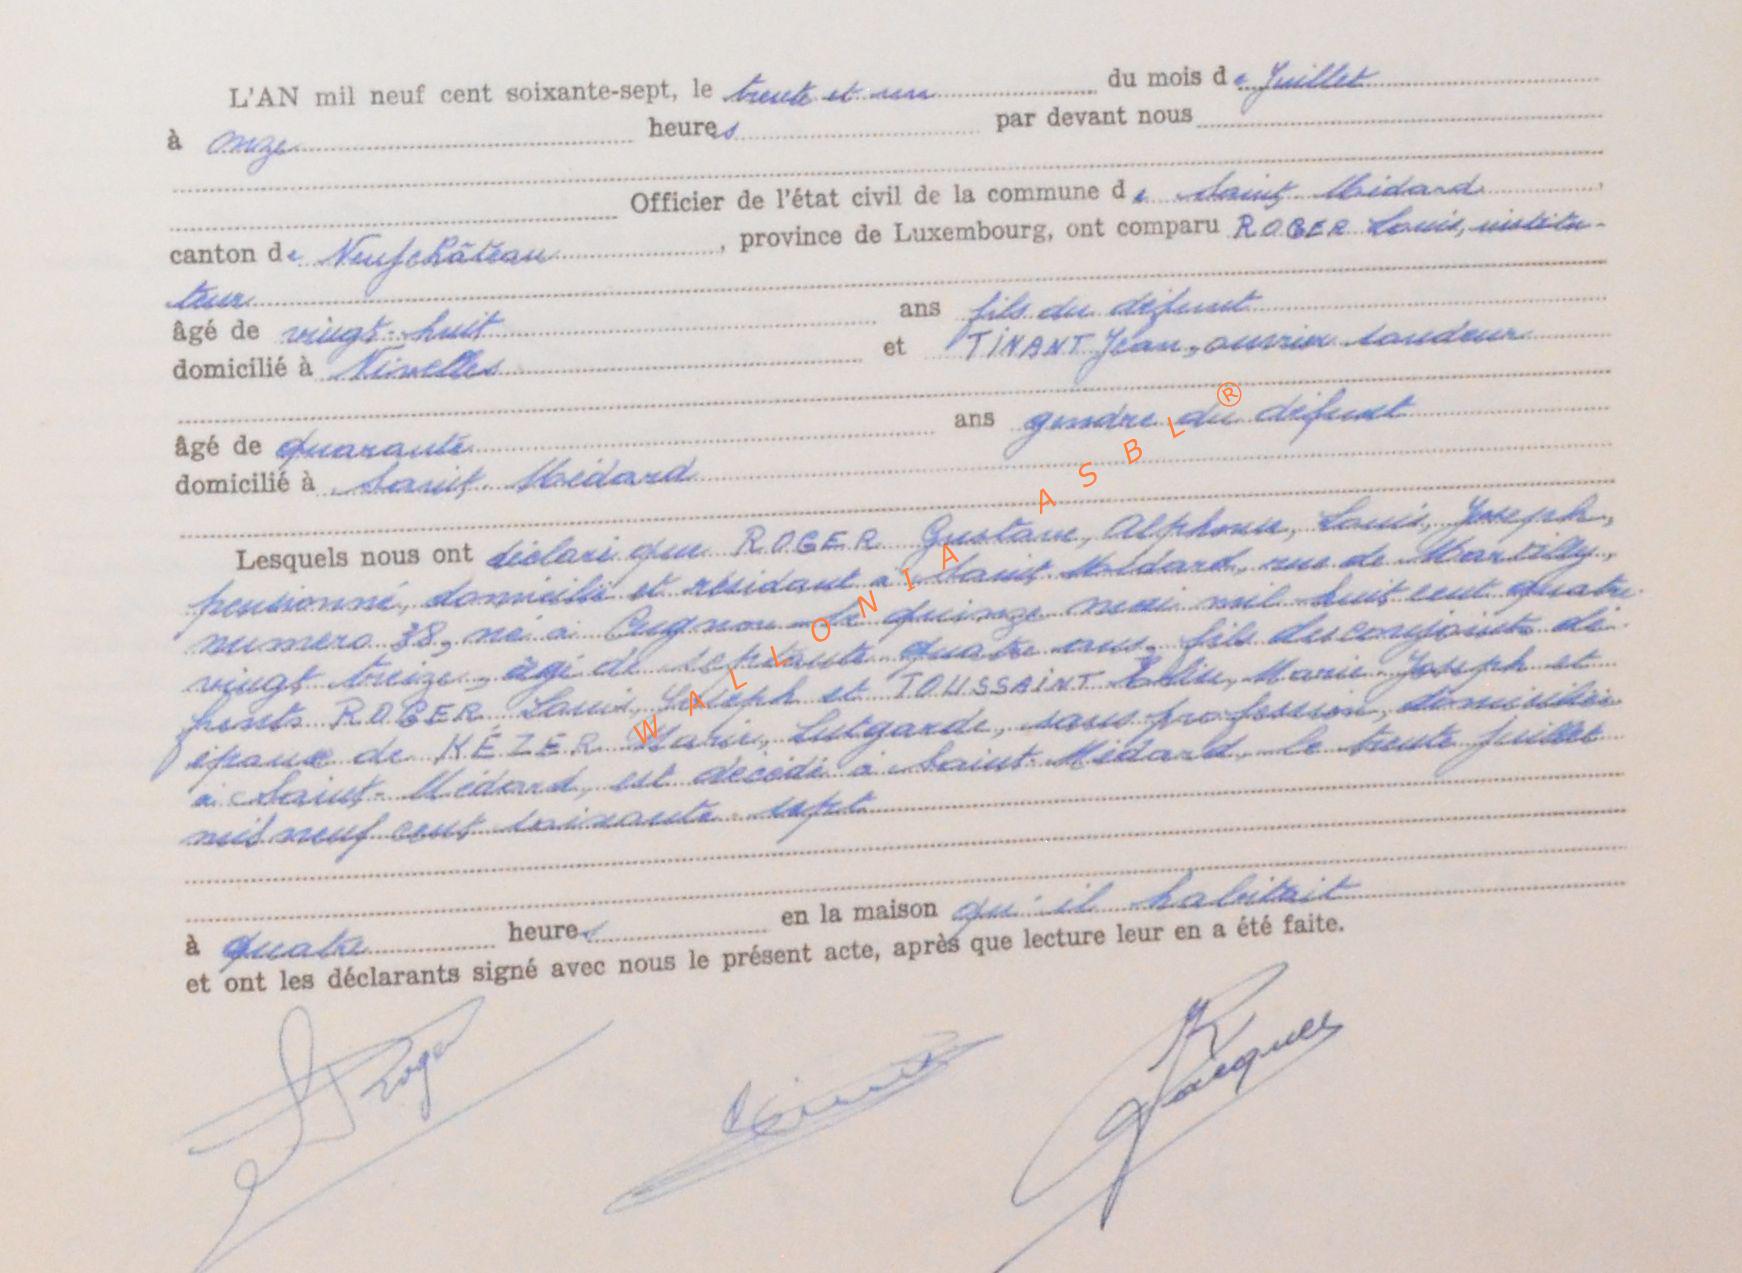 L'AN mil neuf cent soixante-sept, le trente et un du mois de Juillet
à onze heures par devant nous
Officier de l'état civil de la commune de Saint Médard,
canton de Neufchâteau, province de Luxembourg, ont comparu ROGER Louis, institu-
teur
âgé de vingt-huit ans fils du défunt
domicilié à Nivelles et TINANT Jean, ouvrier soudeur
âgé de quarante ans gendre du défunt
domicilié à Saint-Médard
Lesquels nous ont déclaré que ROGER Gustave, Alphonse, Louis, Joseph,
pensionné, domicilié et résidant à Saint Médard, rue de
numéro 38, né à Cugnon le quinze mai mil huit cent quatre-
vingt treize, âgé de septante quatre ans, fils des conjoints dé-
funts ROGER Louis, Joseph et TOUSSAINT Marie-Joseph et
époux de KÉZER Marie, Lutgarde, sans profession, domiciliée
à Saint-Médard, est décédé à Saint-Médard, le trente juillet
mil neuf cent soixante-sept
à quatre heures en la maison qu'il habitait
et ont les déclarants signé avec nous le présent acte, après que lecture leur en a été faite.
Roger
Jacques
WALLONIA ASBL®